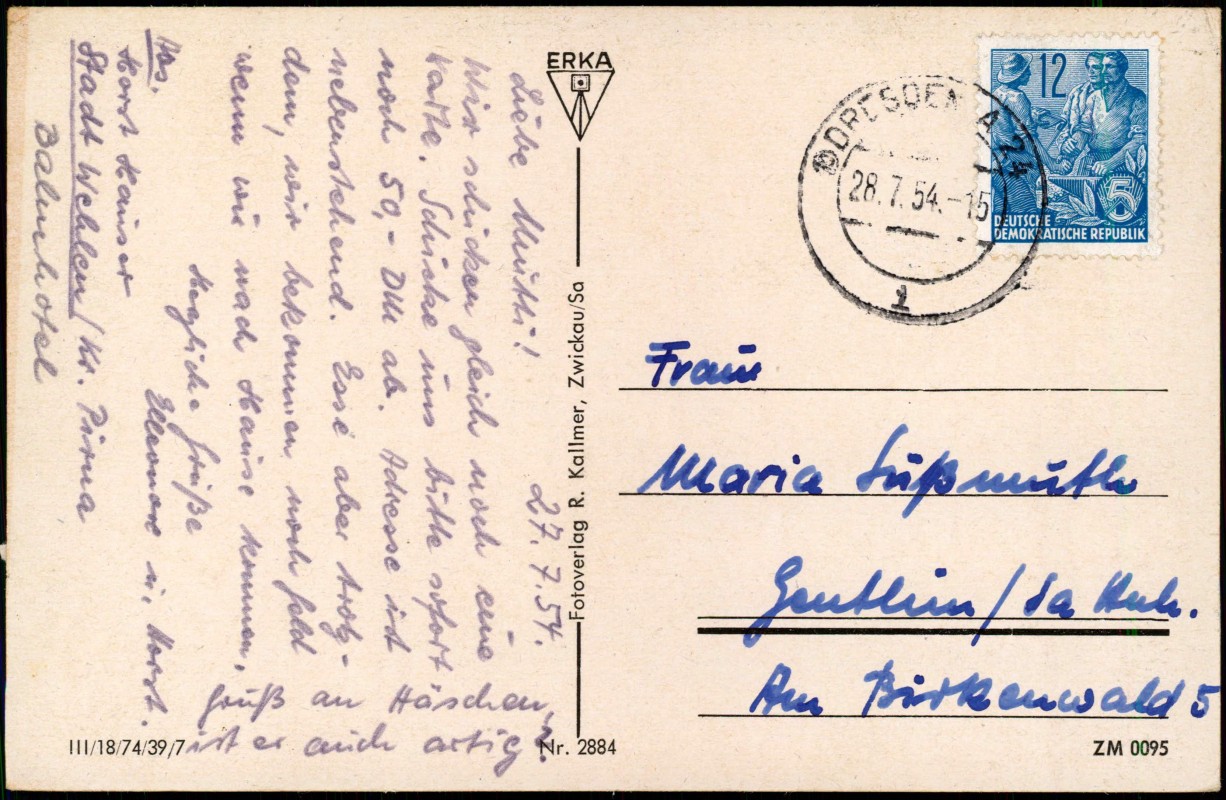 27.7.54.
Liebe Mutti!
Wir schicken gleich noch eine
Karte. Schicke uns bitte sofort
noch 50,- DM ab. Adresse ist
nebenstehend. Esse aber trotz-
dem, wir bekommen noch Geld
wenn wir nach Hause kommen.
Herzliche Grüße
Ellemore u. Horst.
Gruß an Häschen,
ist er auch artig?
Abs.
Horst Hauser
Stadt Wehlen/Kr. Pirna
Bahnhotel
ERKA
Fotoverlag R. Kallmer, Zwickau/Sa
III/18/74/39/7
Nr. 2884
DRESDEN A 24
28.7.54.-15
1
12
5
DEUTSCHE
DEMOKRATISCHE REPUBLIK
Frau
Maria Süßmuth
Genthin/Sa Anh.
Am Birkenwald 5
ZM 0095